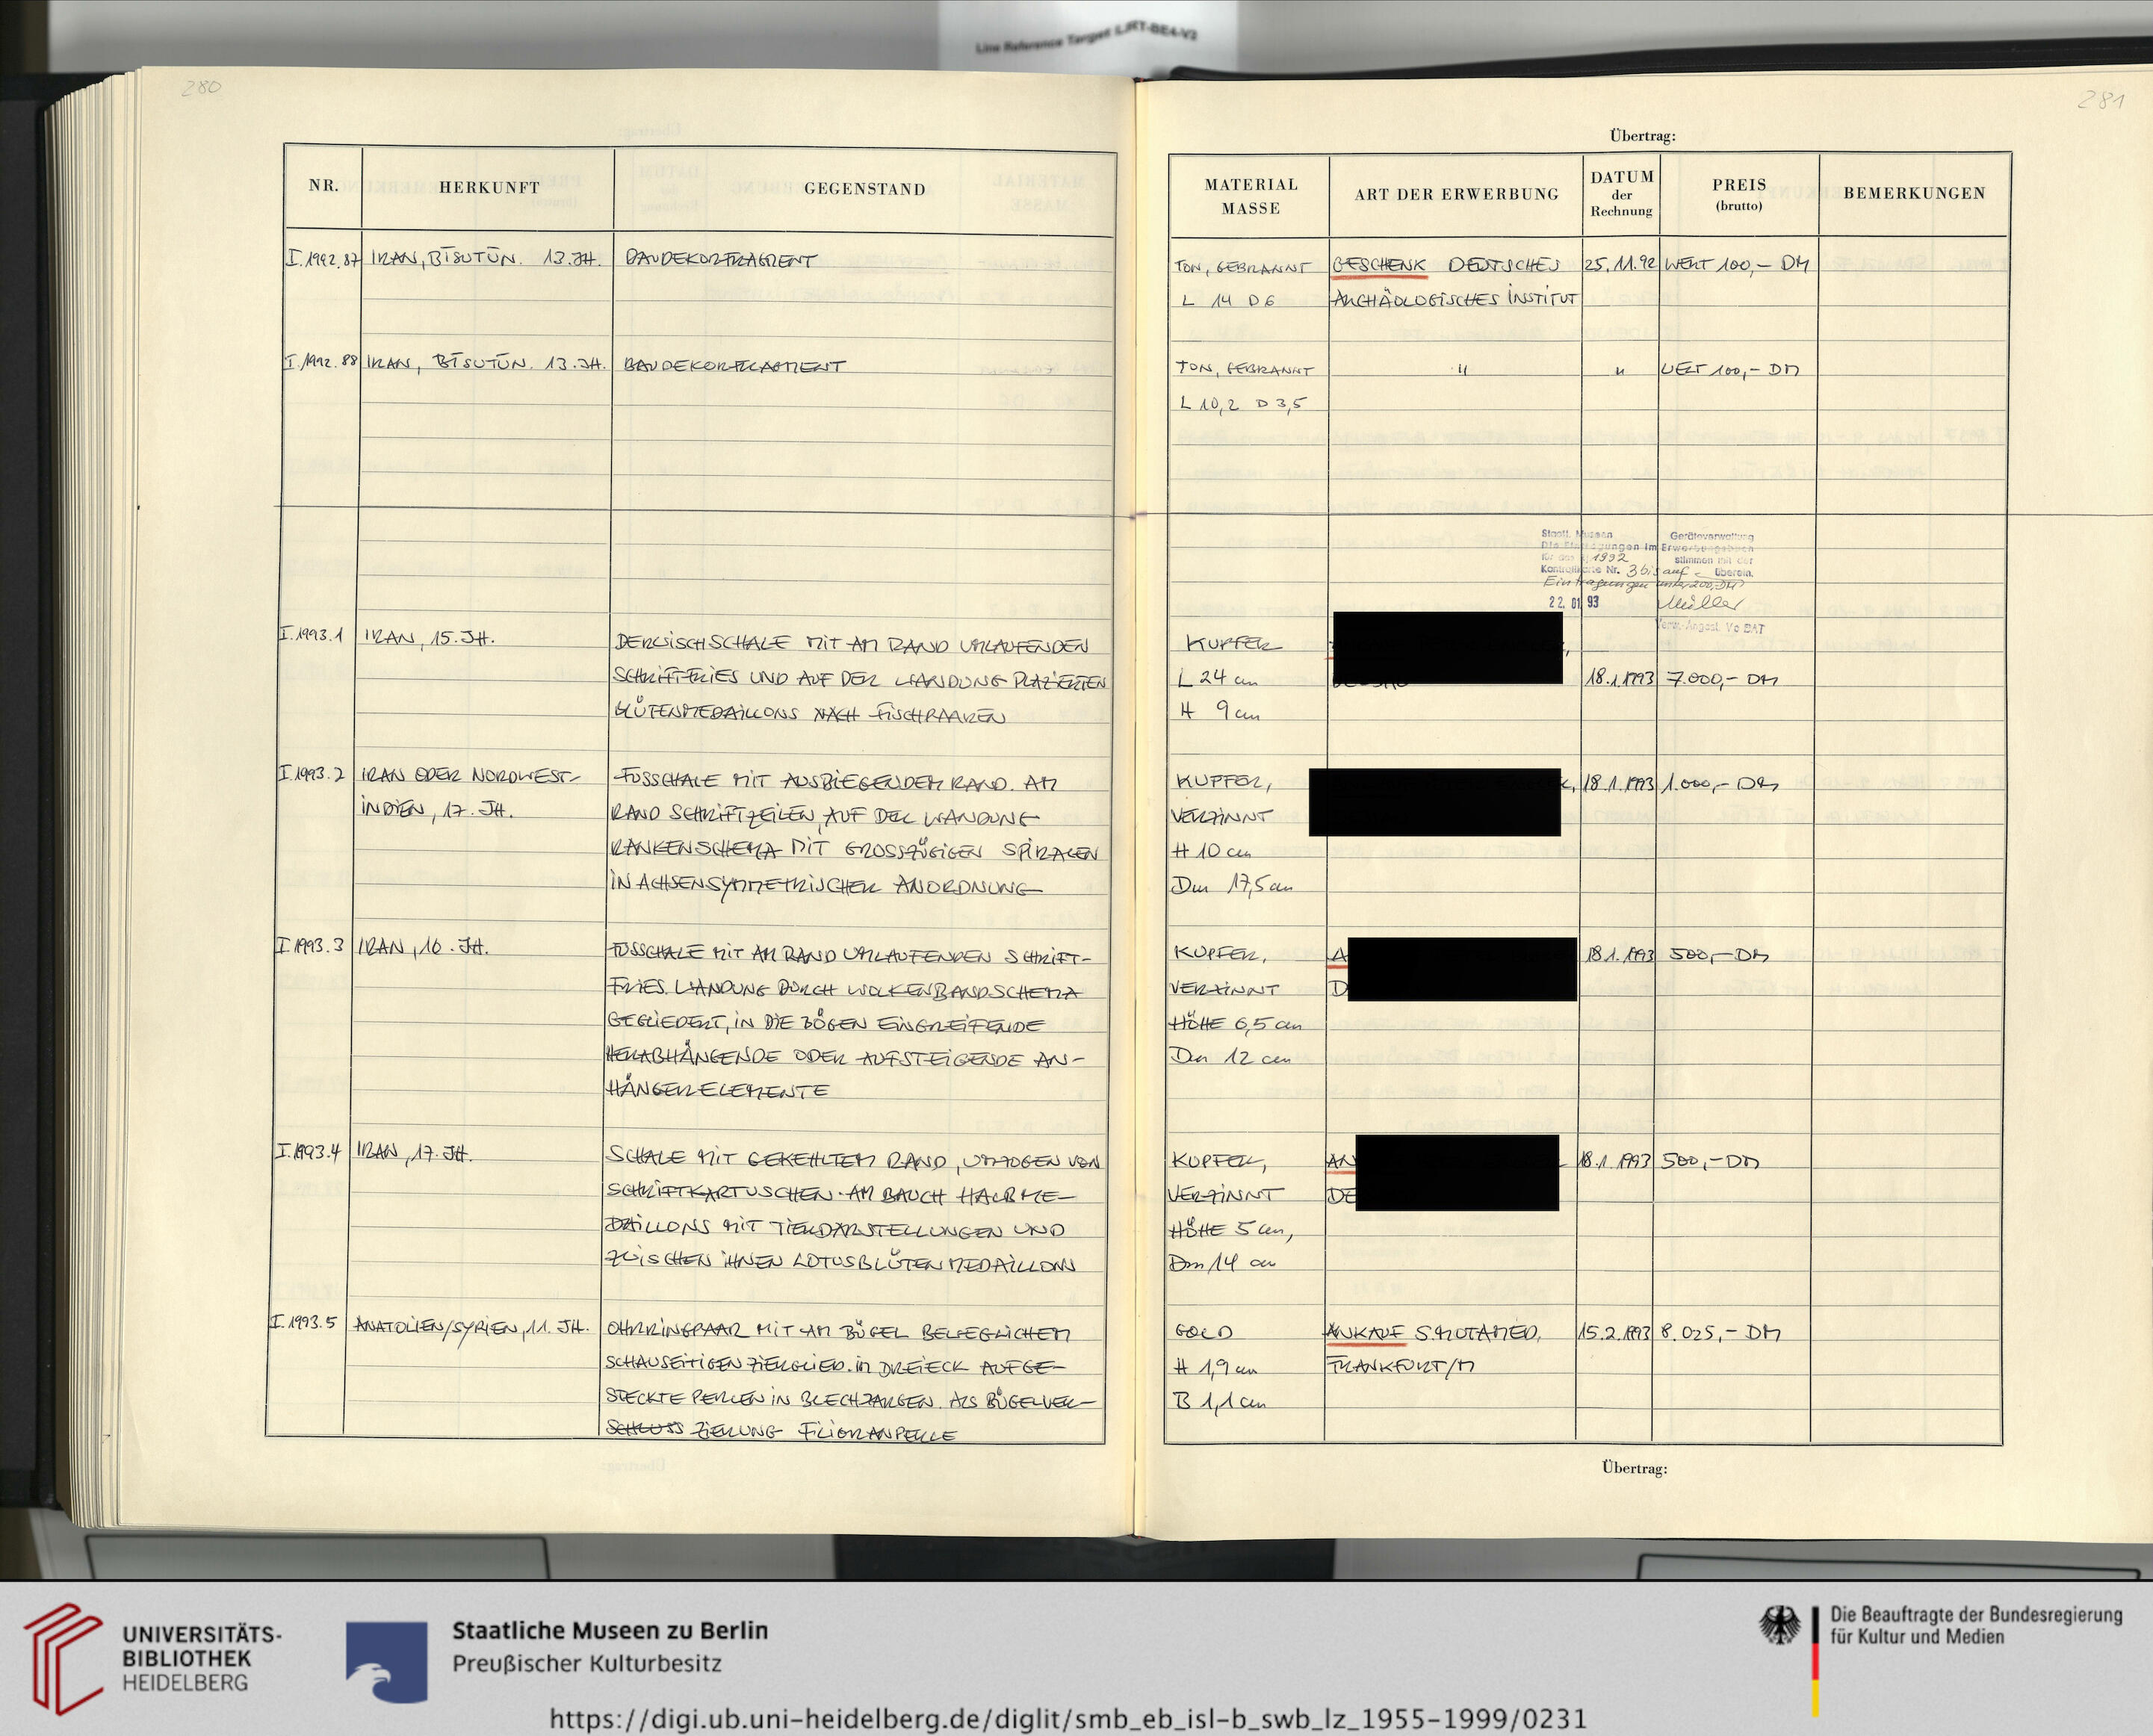 Line Reference Target LJRT-BE4-V2
280
NR.
HERKUNFT
GEGENSTAND
I.1992.87
IRAN, BĪSUTŪN. 13.JH.
BAUDEKORFRAGMENT
I.1992.88
IRAN, BĪSUTŪN. 13.JH.
BAUDEKORFRAGMENT
I.1993.1
IRAN, 15.JH.
DERWISCHSCHALE MIT AM RAND UMLAUFENDEN
SCHRIFTFRIES UND AUF DER WANDUNG PLAZIERTEN
BLÜTENMEDAILLONS NACH FISCHPAAREN
I.1993.2
IRAN ODER NORDWEST-
INDIEN, 17.JH.
FUSSCHALE MIT AUSBIEGENDEM RAND. AM
RAND SCHRIFTZEILEN, AUF DER WANDUNG
RANKENSCHEMA MIT GROSSZÜGIGEN SPIRALEN
IN ACHSENSYMMETRISCHER ANORDNUNG
I.1993.3
IRAN, 16.JH.
FUSSCHALE MIT AM RAND UMLAUFENDEN SCHRIFT-
FRIES. WANDUNG DURCH WOLKENBANDSCHEMA
GEGLIEDERT, IN DIE BÖGEN EINGREIFENDE
HERABHÄNGENDE ODER AUFSTEIGENDE AN-
HÄNGERELEMENTE
I.1993.4
IRAN, 17.JH.
SCHALE MIT GEKEHLTEM RAND, UMZOGEN VON
SCHRIFTKARTUSCHEN. AM BAUCH HALBME-
DAILLONS MIT TIERDARSTELLUNGEN UND
ZWISCHEN IHNEN LOTUSBLÜTENMEDAILLONS
I.1993.5
ANATOLIEN/SYRIEN, 11.JH.
OHRRINGPAAR MIT AM BÜGEL BEWEGLICHEM
SCHAUSEITIGEN ZIERGLIED. IM DREIECK AUFGE-
STECKTE PERLEN IN BLECHZARGEN. ALS BÜGELVER-
SCHLUSS ZIERUNG FILIGRANPERLE
281
Übertrag:
MATERIAL
MASSE
ART DER ERWERBUNG
DATUM
der
Rechnung
PREIS
(brutto)
BEMERKUNGEN
TON, GEBRANNT
L 14 D 6
GESCHENK DEUTSCHES
ARCHÄOLOGISCHES INSTITUT
25.11.92
WERT 100,- DM
TON, GEBRANNT
L 10,2 D 3,5
"
"
WERT 100,- DM
Staatl. Museen Geräteverwaltung
Die Eintragungen im Erwerbungsbuch
für das Hj 1992 stimmen mit der
Kontrolliste Nr. 3 bis auf - überein.
Eintragungen unter 200,- DM
22. 01. 93 Müller
Verw.-Angest. Vc BAT
KUPFER
L 24 cm
H 9 cm
18.1.1993
7.000,- DM
KUPFER,
VERZINNT
H 10 cm
Dm 17,5 cm
18.1.1993
1.000,- DM
KUPFER,
VERZINNT
HÖHE 6,5 cm
Dm 12 cm
A
D
18.1.1993
500,- DM
KUPFER,
VERZINNT
HÖHE 5 cm,
Dm 14 cm
AN
DE
18.1.1993
500,- DM
GOLD
H 1,9 cm
B 1,1 cm
ANKAUF S. MOTAMED,
FRANKFURT/M
15.2.1993
8.025,- DM
Übertrag:
UNIVERSITÄTS-
BIBLIOTHEK
HEIDELBERG
Staatliche Museen zu Berlin
Preußischer Kulturbesitz
Die Beauftragte der Bundesregierung
für Kultur und Medien
https://digi.ub.uni-heidelberg.de/diglit/smb_eb_isl-b_swb_lz_1955-1999/0231